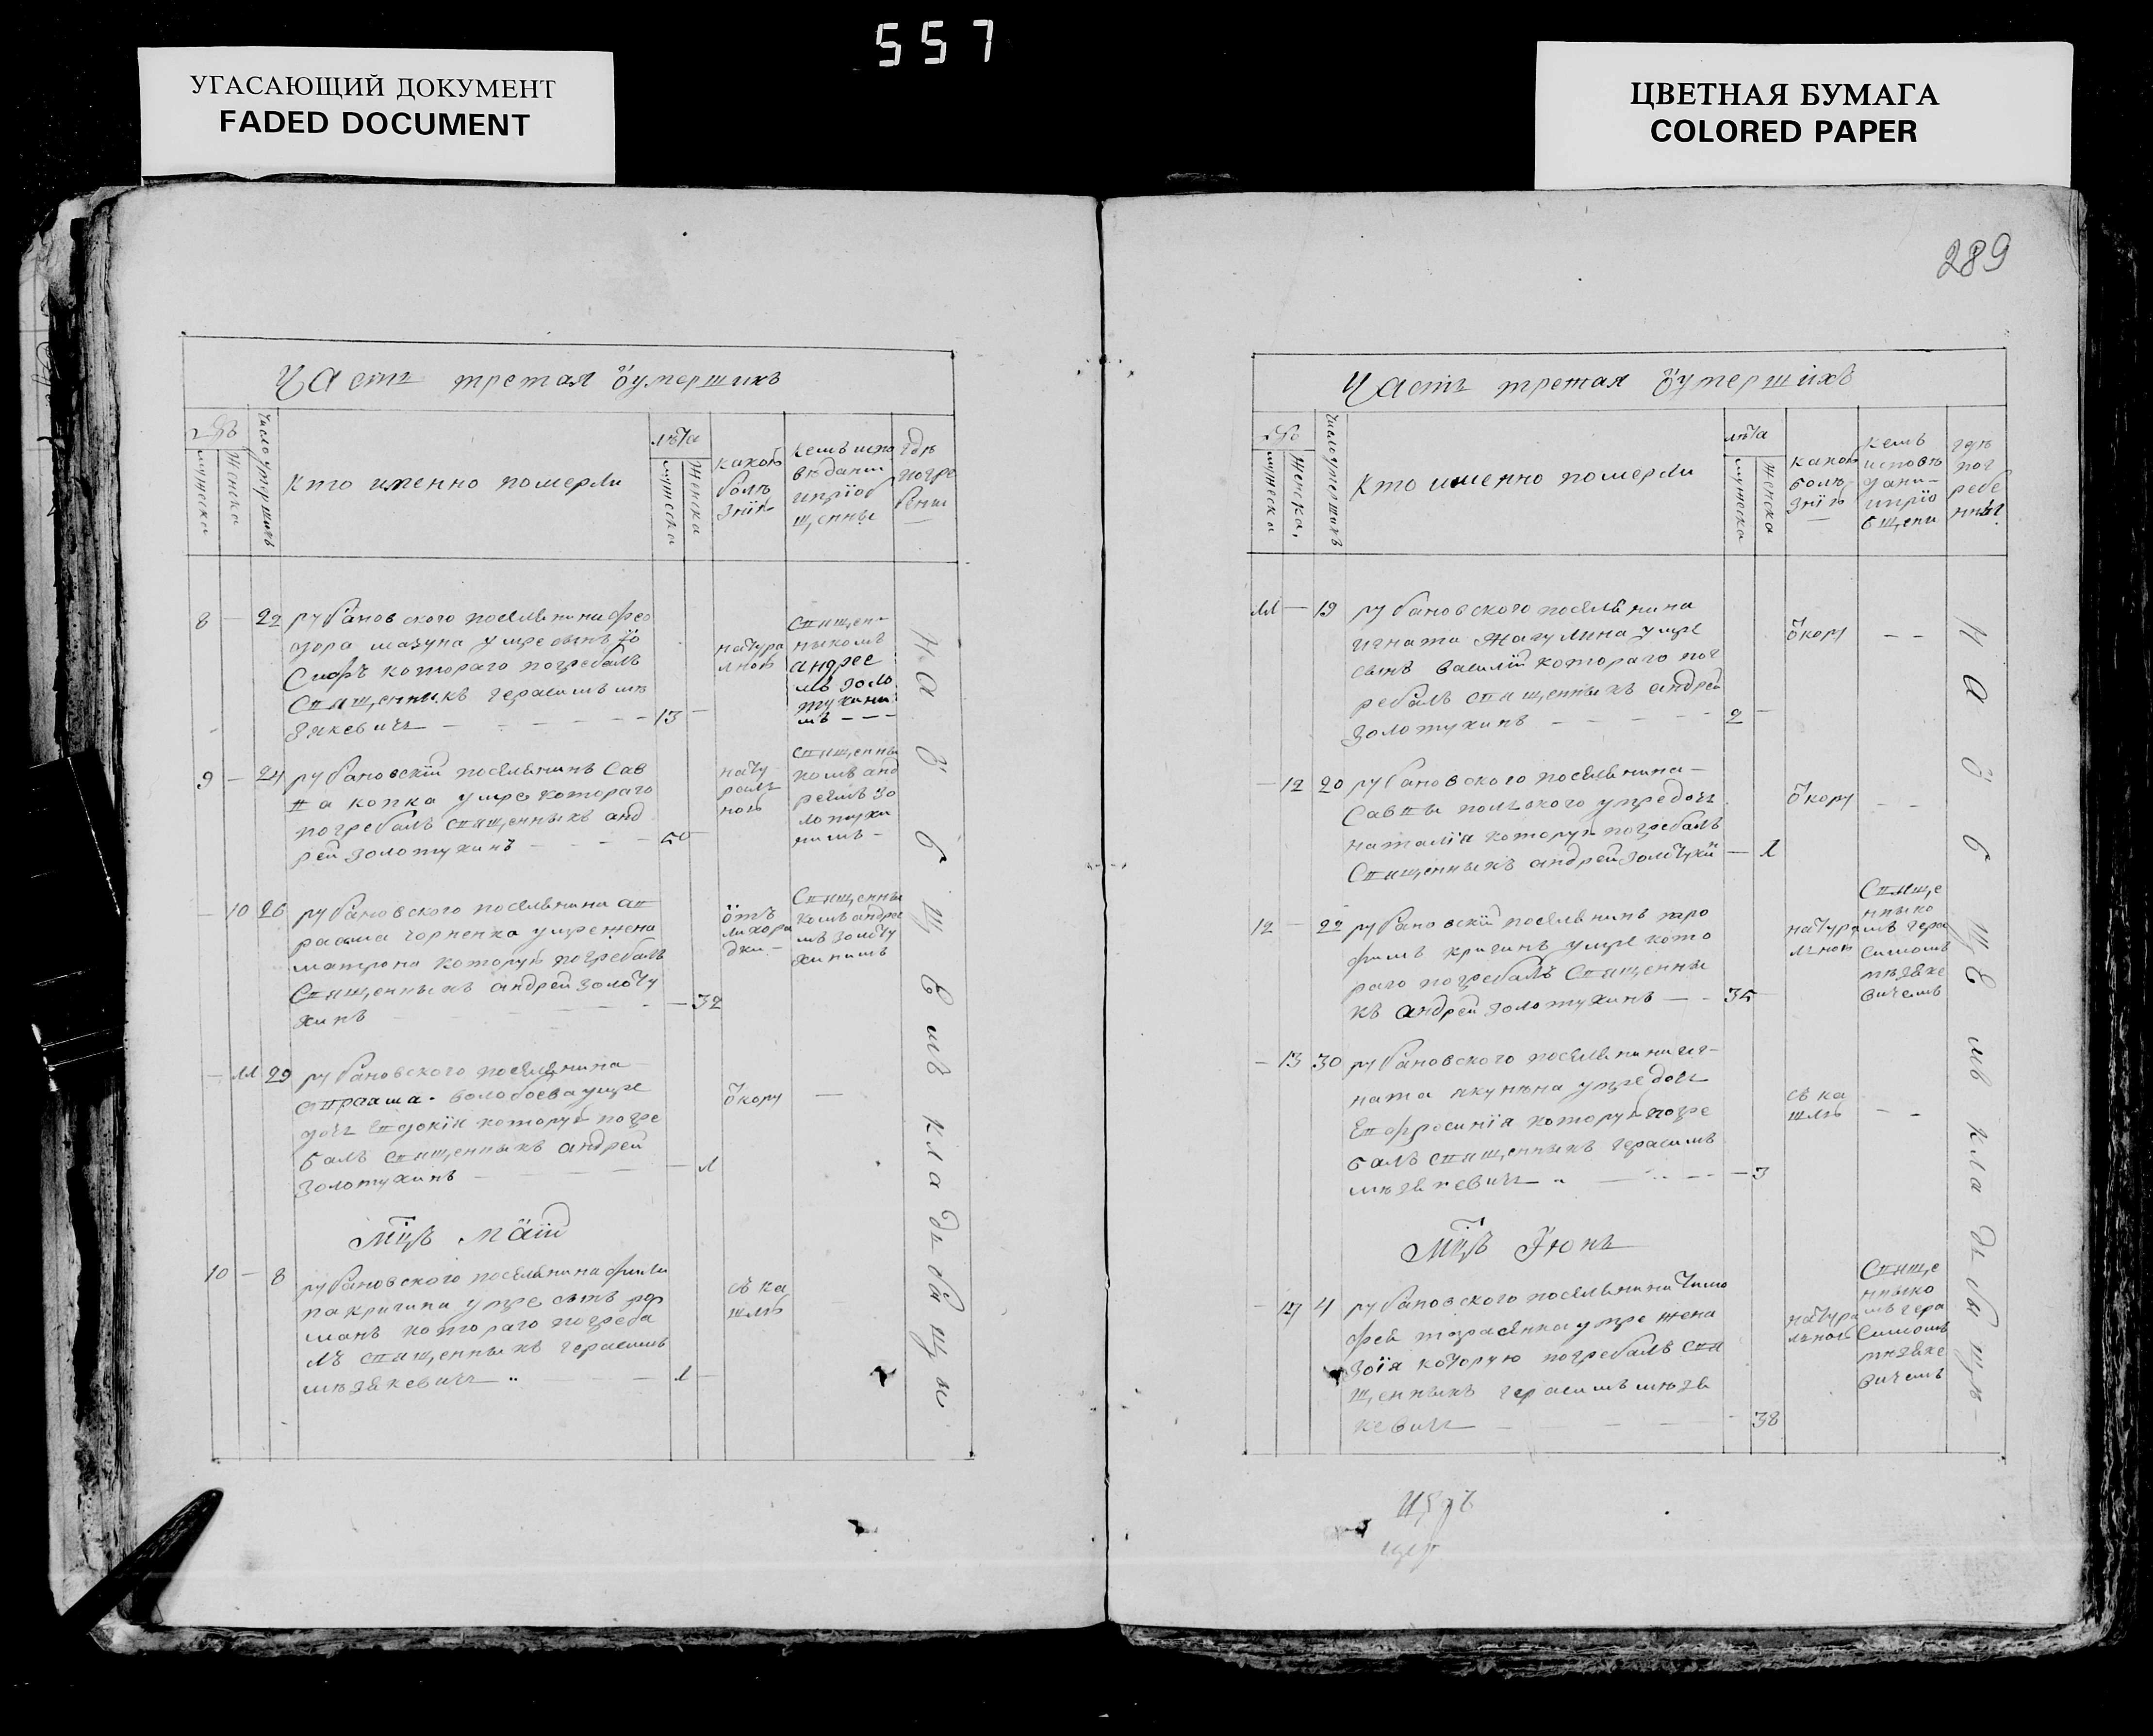 557
УГАСАЮЩИЙ ДОКУМЕНТ
FADED DOCUMENT
ЦВЕТНАЯ БУМАГА
COLORED PAPER
289
Часть третая ѿумершихъ
мужеска
женска
Число умершихъ
Кто именно померли
лѣта
мужеска
женска
какою
болѣ
знію
кемъ испо
вѣдани
и пріоб
щенны
гдѣ
погре
бени
8 — 22 рубановского поселянина фео
дора мазуна умре сынъ іо
сифъ котораго погребалъ
священникъ герасимъ мѣ
зякевичъ — 13 —
натура
лною
священ
никомъ
андрее
мъ золо
тухини
мъ
9 — 24 рубановскій поселянинъ сав
ва копка умре котораго
погребалъ священникъ анд
рей золотухинъ — 50
нату
раль
ною
священни
комъ анд
реемъ зо
лотухи
нимъ
— 10 26 рубановского поселянина ав
рамма чорненка умре жена
матрона которую погребалъ
священникъ андрей золоту
хинъ — 32
ѿтъ
лихора
дки
священни
комъ андре
мъ золоту
хинимъ
— 11 29 рубановского поселянина
волобоева умре
дочь евдокія которую погре
балъ священникъ андрей
золотухинъ — 1
ѿкору
мцъ маій
10 — 8 рубановского поселянина фили
па кригина умре сынъ ро
манъ котораго погреба
лъ священникъ герасимъ
мѣзякевичъ 1 —
съ ка
шлю
на ѿбщемъ кладьбищи
Часть третая ѿумершихъ
мужеска
женска
Число умершихъ
Кто именно померли
лѣта
мужеска
женска
какою
болѣ
знію
кемъ
исповѣ
дани
и пріо
бщени
гдѣ
пог
ребе
нны
11 — 19 рубановского поселянина
игната жагулина умре
сынъ василій котораго пог
ребалъ священникъ андрей
золотухинъ 2 —
ѿкору
— 12 20 рубановского поселянина
саввы польского умре дочь
наталія которую погребалъ
священникъ андрей золотухи — 1
ѿкору
12 — 22 рубановскій поселянинъ тро
фимъ кригинъ умре кото
раго погребалъ священни
къ андрей золотухинъ — 35
натура
льною
свяще
нико
мъ гера
симомъ
мѣзяке
вичемъ
— 13 30 рубановского поселянина иг
ната якунѣна умре дочь
евфросинія которую погре
балъ священникъ герасимъ
мѣзякевичъ — 3
съ ка
шлю
мцъ іюнь
— 14 4 рубановского поселянина тимо
фея тарасенка умре жена
зоія которую погребалъ свя
щенникъ герасимъ мѣзя
кевичъ — 38
натура
льною
свяще
нико
мъ гера
симомъ
мѣзяке
вичемъ
на ѿбщемъ кладьбищѣ